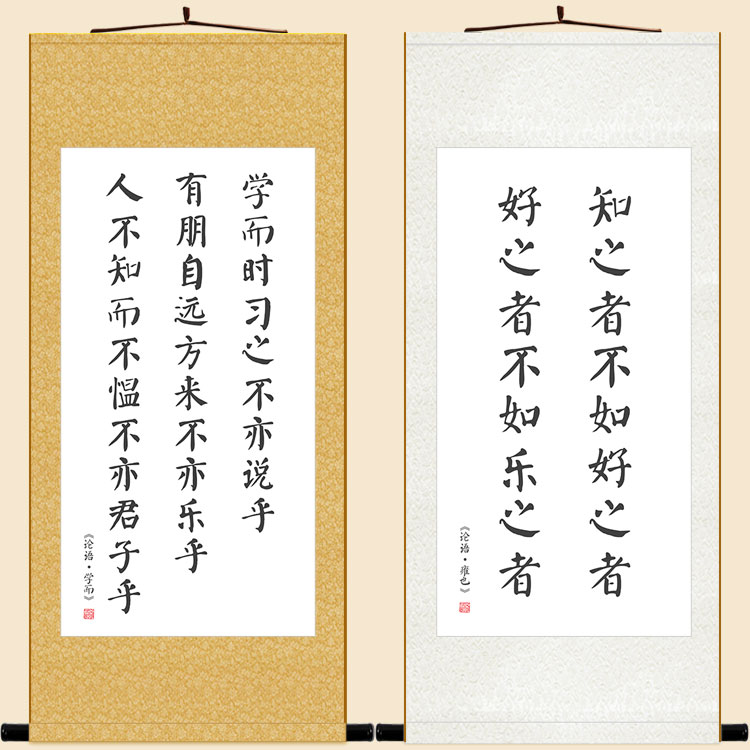 学而时习之不亦说乎
有朋自远方来不亦乐乎
人不知而不愠不亦君子乎
《论语·学而》
知之者不如好之者
好之者不如乐之者
《论语·雍也》